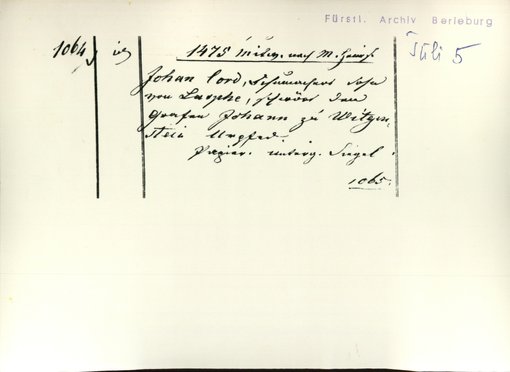 Fürstl. Archiv Berleburg
1064
1475 Mittw. nach M. Geburt
Johan Cord, Schumachers Sohn
von Laasphe, schwört dem
Grafen Johann zu Witgen-
stein Urpfed.
Papier. unterg. Siegel.
1065.